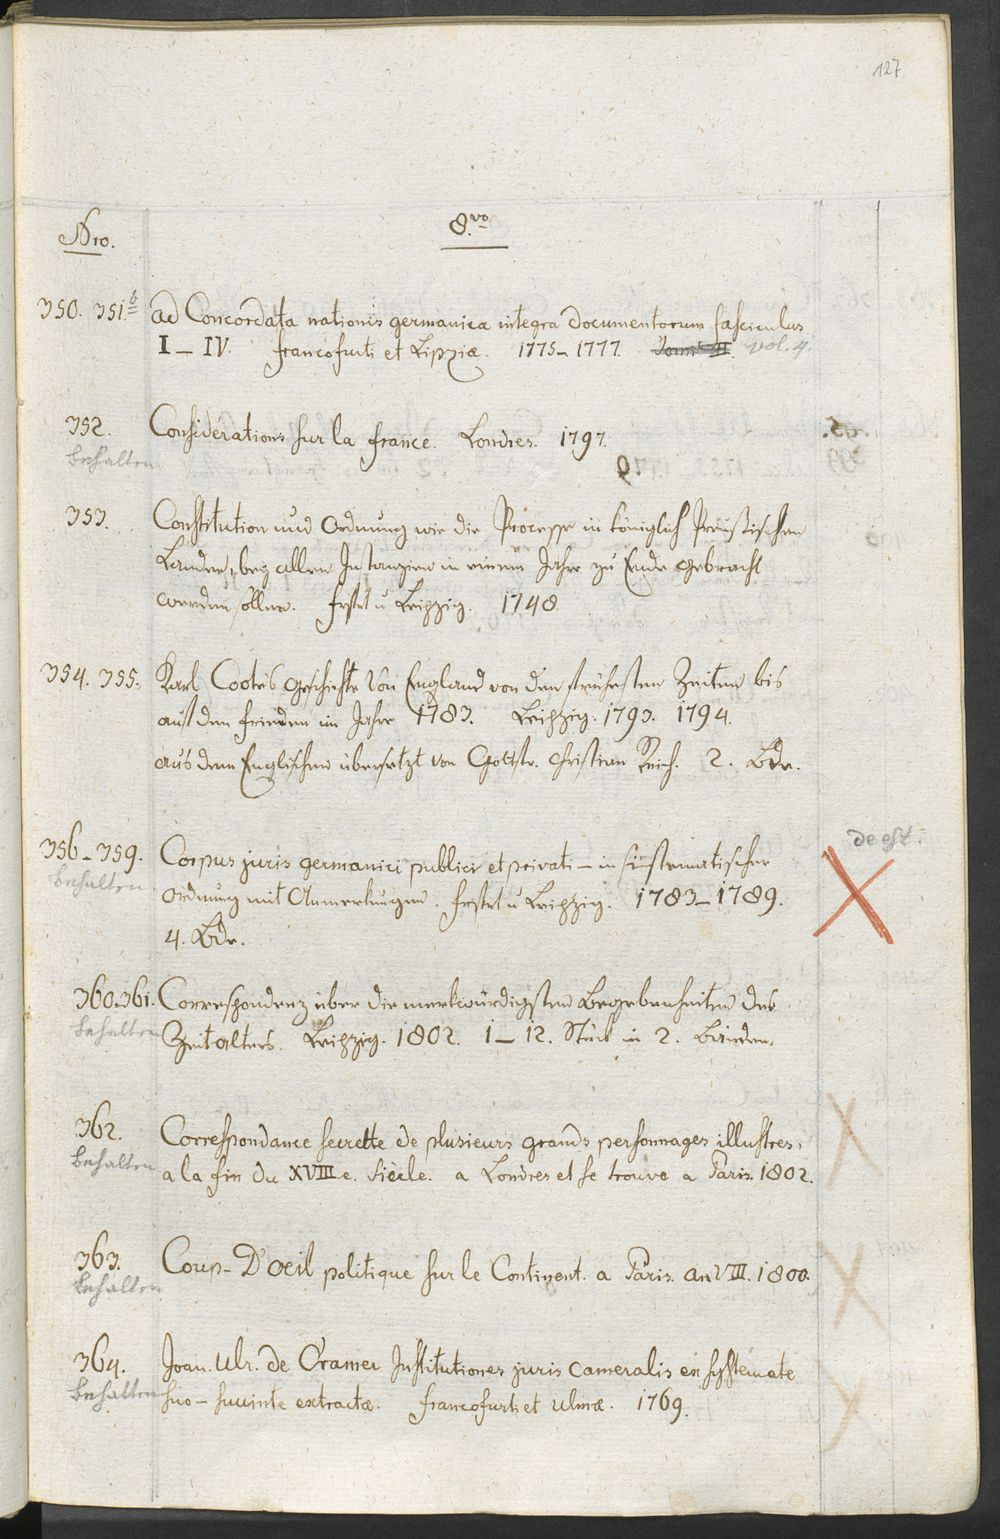 127
Nro.
8.vo
350. 351.b
ad Concordata nationis germanicæ integra documentorum fasciculus
I – IV. francofurti et Lipziæ. 1775–1777. vol. 4.
352.
Considerations sur la france. Londres. 1797.
behalten
353.
Constitution und Ordnung wie die Processe in königlich Preußischen
Landen, bey allen Instanzien in einem Jahre zu Ende gebracht
werden sollen. frft u Leipzig. 1748.
354. 355.
Karl Coote's Geschichte von England von den frühesten Zeiten bis
auf den frieden im Jahre 1783. Leipzig. 1793. 1794.
aus dem Englischen übersetzt von Gottfr. Christian Reich. 2. Bde.
356–359.
deest.
Corpus juris germanici publici et privati – in sistematischer
behalten
Ordnung mit Anmerkungen. frft u Leipzig. 1783–1789.
4. Bde.
360. 361.
Correspondenz über die merkwürdigsten Begebenheiten des
behalten
Zeitalters. Leipzig. 1802. 1–12. Stück in 2. Bänden.
362.
Correspondance secrette de plusieurs grands personnages illustres,
behalten
a la fin du XVIIIe. Siècle. a Londres et se trouve a Paris. 1802.
363.
Coup-D'oeil politique sur le Continent. a Paris. an VIII. 1800.
behalten
364.
Joan. Ulr. de Cramer Institutiones juris cameralis ex systemate
behalten
suo – extractæ. francofurti et ulmæ. 1769.